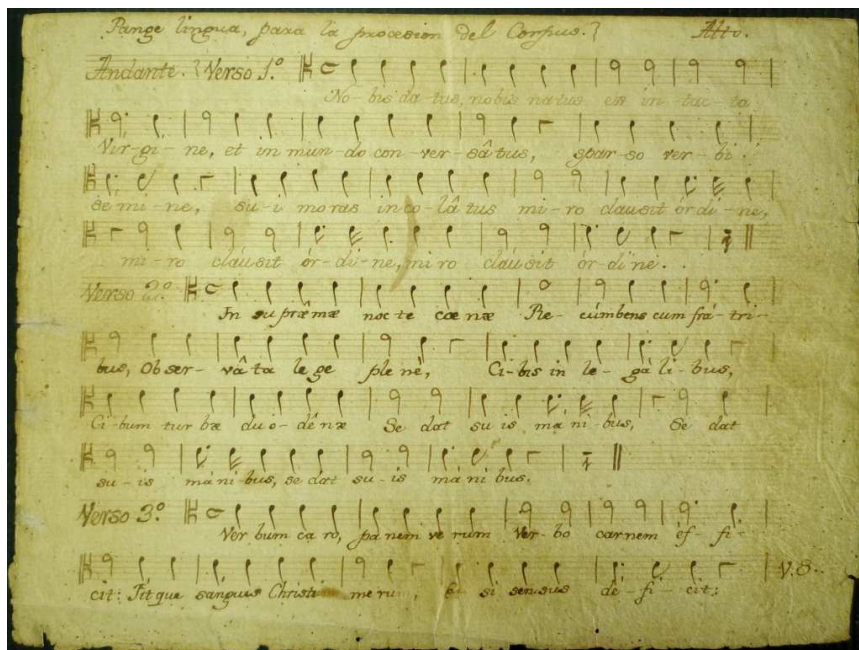 Pange lingua, para la procesion del Corpus. Alto.
Andante. Verso 1.º
No-bis da-tus, nobis natus ex in-tac-ta
Vir-gi-ne, et in mun-do con-ver-sâtus, spar-so ver-bi
se mi-ne, su-i moras inco-lâtus mi-ro clausit órdi-ne,
mi-ro cláusit ór-di-ne, mi ro cláusit ór-di ne.
Verso 2.º In su præmæ noc-te cœ næ Re-cúmbens cum frá-tri-
bus, Ob ser-vâ ta le ge ple nè, Ci-bis in le-gá li-bus,
Ci-bum tur bæ du o-dê næ Se dat su is má ni-bus, Se dat
su-is má ni-bus, se dat su-is má ni bus.
Verso 3.º Ver bum ca ro, pa nem ve rum Ver-bo carnem éf-fi-
cit: Fit que sanguis Christi meru, si sensus dé-fi-cit:
V.S.